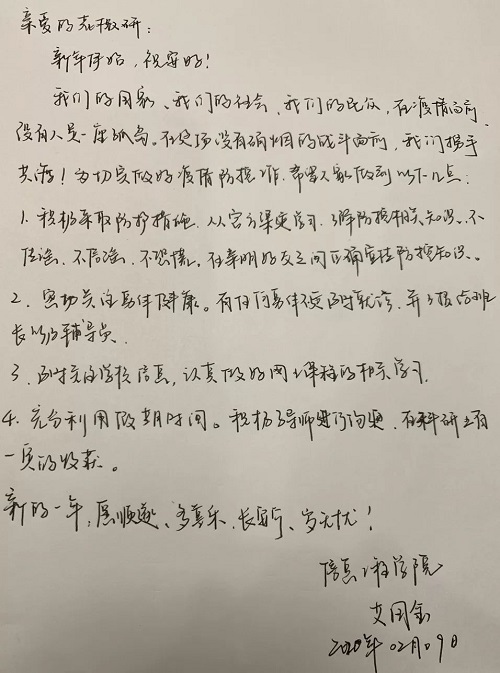 亲爱的北微研：
新年伊始，祝安好！
我们的国家、我们的社会、我们的民众，在疫情面前，
没有人是一座孤岛。在这场没有硝烟的战斗面前，我们携手
共渡！为切实做好疫情防控工作，希望大家做到以下几点：
1. 积极采取防护措施，从官方渠道学习、了解防控相关知识、不
传谣、不信谣、不恐慌。在亲朋好友之间正确宣传防控知识。
2. 密切关注身体健康。有任何身体不适及时就诊，并上报给班
长以及辅导员。
3. 及时关注学校信息，认真做好网上课程的相关学习。
4. 充分利用假期时间。积极与导师进行沟通，在科研上有
一定的收获。
新的一年，愿顺遂、多喜乐、长安宁、岁无忧！
信息工程学院
艾国金
2020年02月09日